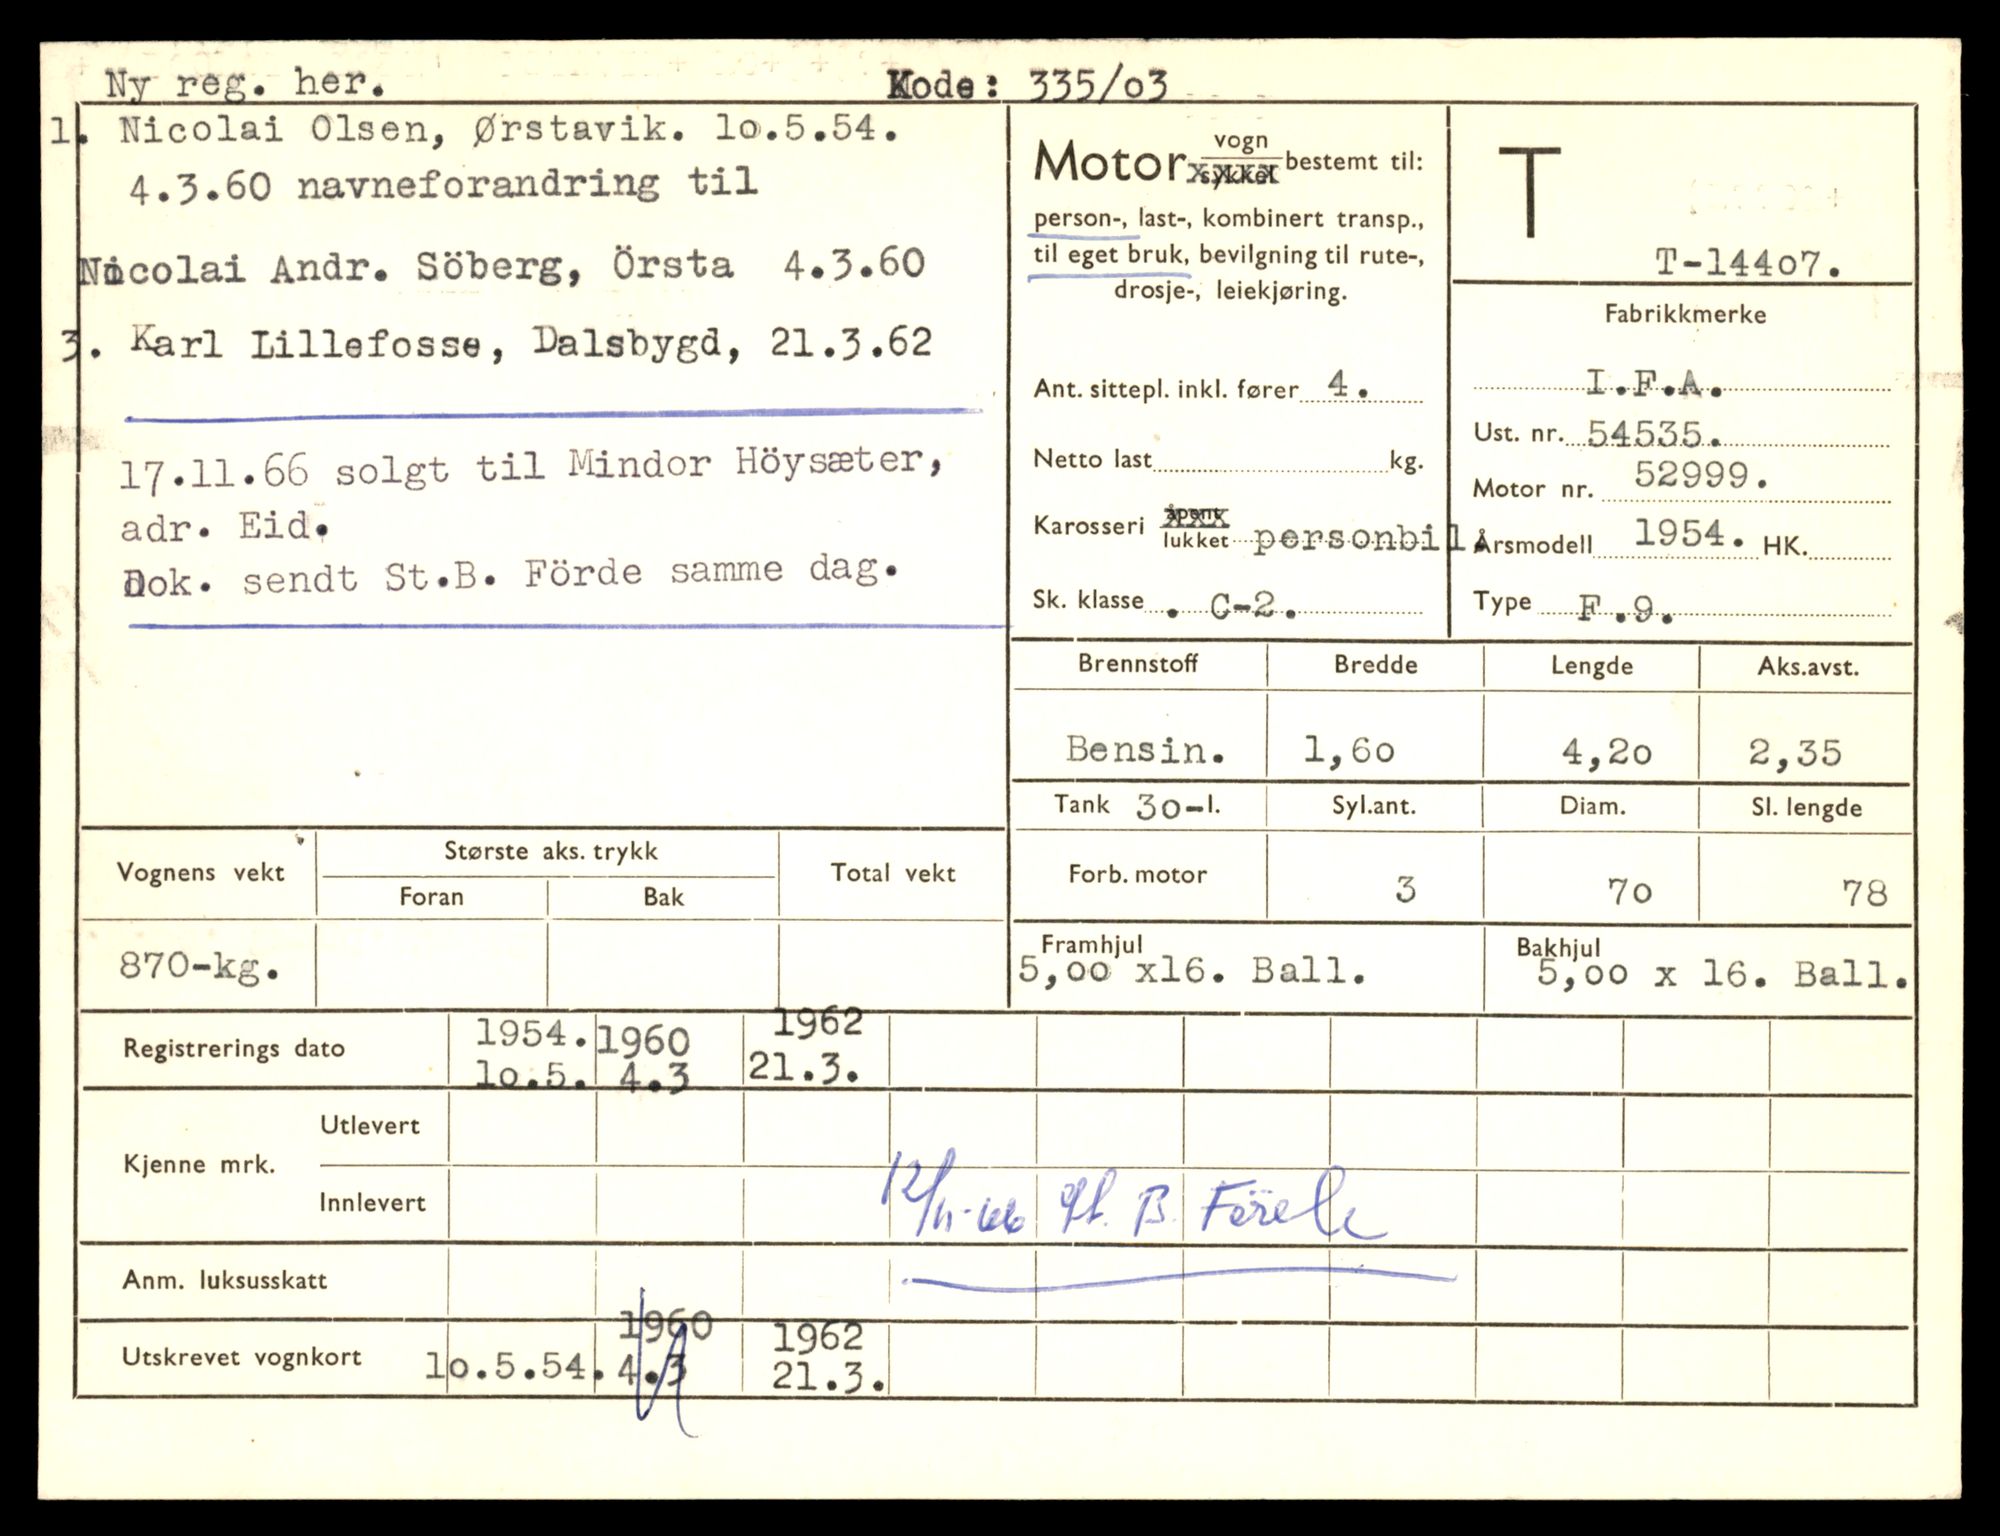 Ny reg. her.
Kode: 335/o3
1. Nicolai Olsen, Ørstavik. lo.5.54.
4.3.60 navneforandring til
Nicolai Andr. Söberg, Örsta 4.3.60
3. Karl Lillefosse, Dalsbygd, 21.3.62
17.11.66 solgt til Mindor Höysæter,
adr. Eid.
Dok. sendt St.B. Förde samme dag.
Motor vogn sykkel bestemt til:
person-, last-, kombinert transp.,
til eget bruk, bevilgning til rute-,
drosje-, leiekjøring.
Ant. sittepl. inkl. fører 4.
Netto last kg.
Karosseri åpent lukket personbil.
Sk. klasse . C-2.
T
T-144o7.
Fabrikkmerke
I.F.A.
Ust. nr. 54535.
Motor nr. 52999.
Årsmodell 1954. HK.
Type F.9.
Brennstoff Bredde Lengde Aks.avst.
Bensin. 1,6o 4,2o 2,35
Tank 3o-l. Syl.ant. Diam. Sl. lengde
Forb. motor 3 7o 78
Framhjul Bakhjul
5,oo x16. Ball. 5,oo x 16. Ball.
Vognens vekt Største aks. trykk Total vekt
Foran Bak
870-kg.
Registrerings dato 1954. 1960 1962
lo.5. 4.3 21.3.
Kjenne mrk. Utlevert
Innlevert 12/11-66 St. B. Förde
Anm. luksusskatt
1960 1962
Utskrevet vognkort lo.5.54. 4.3 21.3.